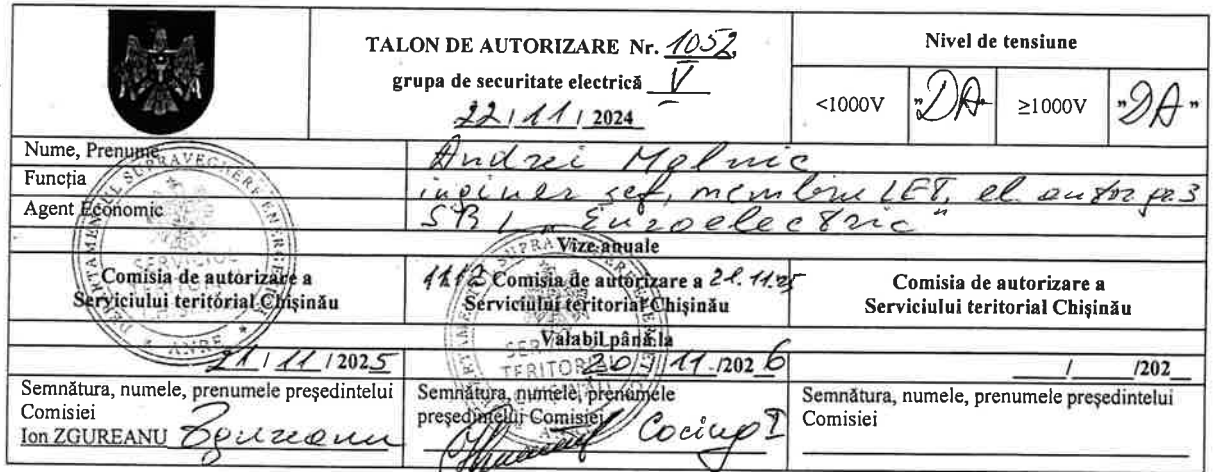 TALON DE AUTORIZARE Nr. 1052
grupa de securitate electrică V
22 / 11 / 2024
Nivel de tensiune
<1000V "DA" ≥1000V "DA"
Nume, Prenume Andrei Melnic
Funcția inginer șef, membru LET, el. autor. gr. 3
Agent Economic SRL "Euroelectric"
Vize anuale
Comisia de autorizare a
Serviciului teritorial Chișinău
1112 Comisia de autorizare a 21.11.25
Serviciului teritorial Chișinău
Comisia de autorizare a
Serviciului teritorial Chișinău
Valabil până la
21 / 11 / 2025
20 / 11 / 2026
/ /202
Semnătura, numele, prenumele președintelui
Comisiei
Ion ZGUREANU Zgureanu
Semnătura, numele, prenumele
președintelui Comisiei
I
Semnătura, numele, prenumele președintelui
Comisiei
DEPARTAMENTUL SUPRAVEGHERE ENERGETICĂ
SERVICIUL
TERITORIAL
ANRE